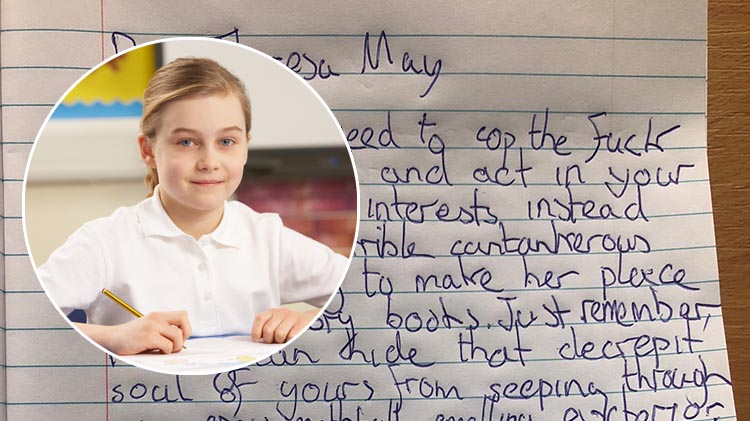 resa May
eed to cop the Fuck
and act in your
interests instead
rible cantankerous
to make her pleace
ory books. Just remember,
an hide that decrepit
soul of yours from seeping through
smelling exterior